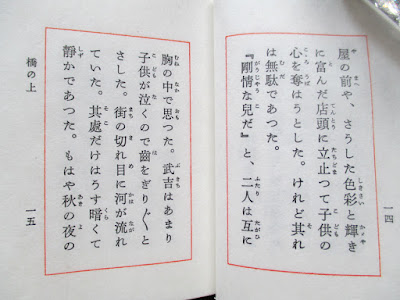 屋の前や、さうした色彩と輝き
に富んだ店頭に立止つて子供の
心を奪はうとした。けれど其れ
は無駄であつた。
『剛情な兒だ』と、二人は互に
一四
胸の中で思つた。武吉はあまり
子供が泣くので齒をぎり〱と
さした。街の切れ目に河が流れ
ていた。其處だけはうす暗くて
靜かであつた。もはや秋の夜の
橋の上
一五